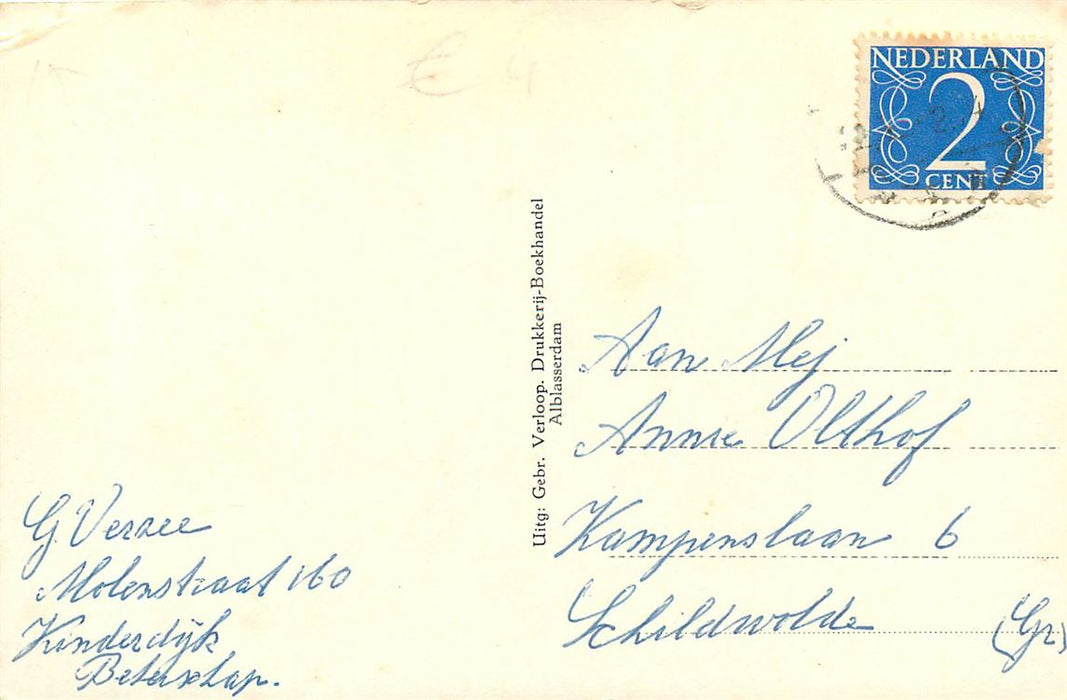 € 4
NEDERLAND
2
CENT
Uitg: Gebr. Verloop. Drukkerij-Boekhandel
Alblasserdam
Aan Mej
Annie Olthof
Kampenslaan 6
Schildwolde (Gr)
G. Verzee
Molenstraat 160
Kinderdijk
Beterschap.